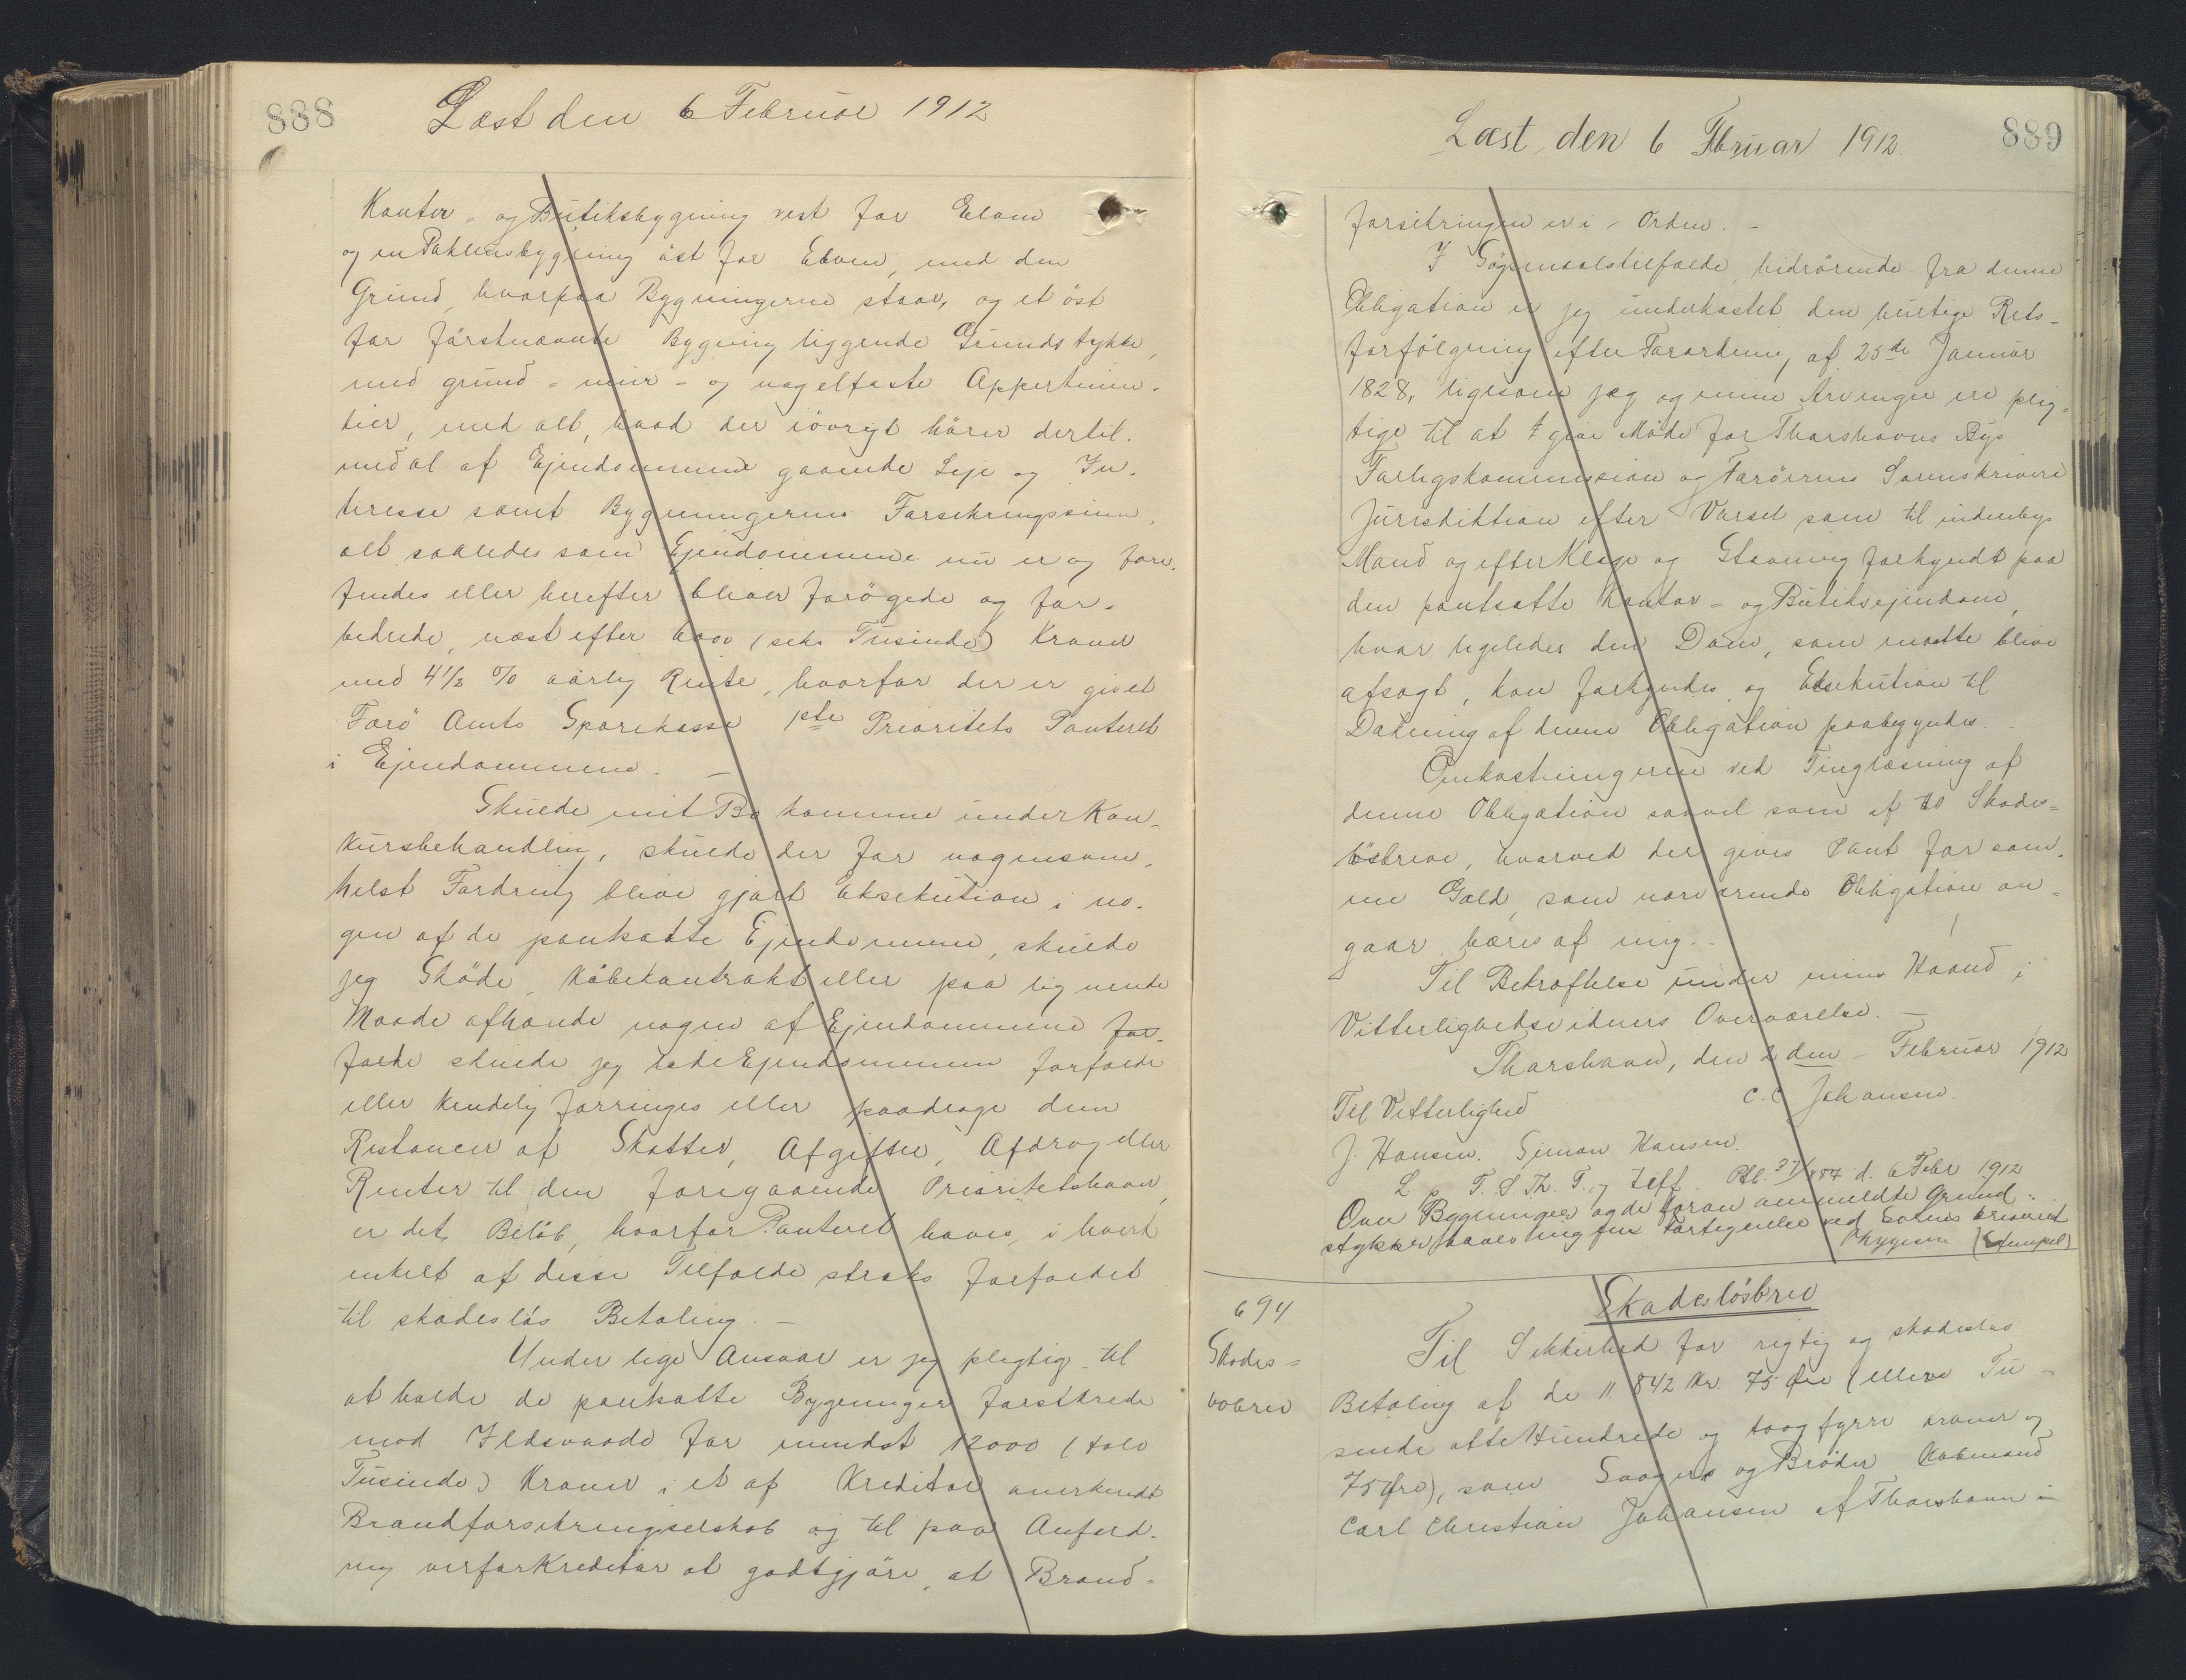 888
Læst den 6 Februar 1912
Kontor- og Butiksbygning vest for Elven
og en Pakhusbygning øst for Elven, med den
Grund, hvorpaa Bygningerne staar, og et øst
for førstnævnte Bygning liggende Grundstykke,
med grund- mur- og nagelfaste Appertinen-
tier, med alt, hvad der iøvrigt hører dertil.
med al af Ejendommene gaaende Leje og In-
teresse samt Bygningernes Forsikringssum,
alt saaledes som Ejendommene nu er og fore-
findes eller herefter bliver forøgede og for-
bedrede, næst efter 6000 (seks Tusinde) Kroner
med 4 1/2 % aarlig Rente, hvorfor der er givet
Færø Amts Sparekasse 1ste Prioritets Panteret
i Ejendommene. —
Skulde mit Bo komme under Kon-
kursbehandling, skulde der for nogensom-
helst Fordring blive gjort Eksekution i no-
gen af de pantsatte Ejendomme, skulde
jeg Skøde, Købekontrakt eller paa lignende
Maade afhænde nogen af Ejendommene for-
falde skulde jeg lade Ejendommen forfalde
eller kendelig forringes eller paadrage dem
Restancer af Skatter, Afgifter, Afdrag eller
Renter til den foregaaende Prioritetshaver,
er det Beløb, hvorfor Panteret haves, i hvert
enkelt af disse Tilfælde straks forfaldet
til skadesløs Betaling. —
Under lige Ansvar er jeg pligtig til
at holde de pantsatte Bygninger forsikrede
mod Ildsvaade for mindst 12000 (tolv
Tusinde) Kroner i et af Kreditor anerkendt
Brandforsikringsselskab og til paa Anford-
ning overfor Kreditor at godtgjøre, at Brand-
Læst den 6 Februar 1912.
889
forsikringen er i Orden. —
I Søgsmaalstilfælde hidrørende fra denne
Obligation er jeg underkastet den hurtige Rets-
forfølgning efter Forordning af 25de Januar
1828, ligesom jeg og mine Arvinger ere plig-
tige til at give Møde for Thorshavns Bys
Forligskommission og Færøernes Sorenskriveri
Jurisdiktion efter Varsel som til indenbys
Mand og efter Klage og Stævning forkyndt paa
den pantsatte Kontor- og Butiksejendom,
hvor ligeledes den Dom, som maatte blive
afsagt, kan forkyndes og Eksekution til
Dækning af denne Obligation paabegyndes.
Omkostningerne ved Tinglæsning af
denne Obligation saavel som af to Skades-
løsbreve, hvorved der gives Pant for sam-
me Gæld, som nærværende Obligation an-
gaar, bæres af mig. —
Til Bekræftelse under min Haand i
Vitterlighedsvidners Overværelse. —
Thorshavn, den 2den Februar 1912
C. C. Johansen.
Til Vitterlighed
J. Hansen. Simon Hansen.
d. 6 Febr 1912
Over Bygninger og de foran anmeldte Grund-
stykker haves ingen Fortegnelse ved Sorenskriveriet
(Stempel)
694
Skades-
løsbrev
Skadesløsbrev
Til Sikkerhed for rigtig og skadesløs
Betaling af de 11,842 Kr. 75 Øre (elleve Tu-
sinde otte Hundrede og toogfyrre Kroner og
75 Øre), som Svoger og Broder Købmand
Carl Christian Johansen af Thorshavn i